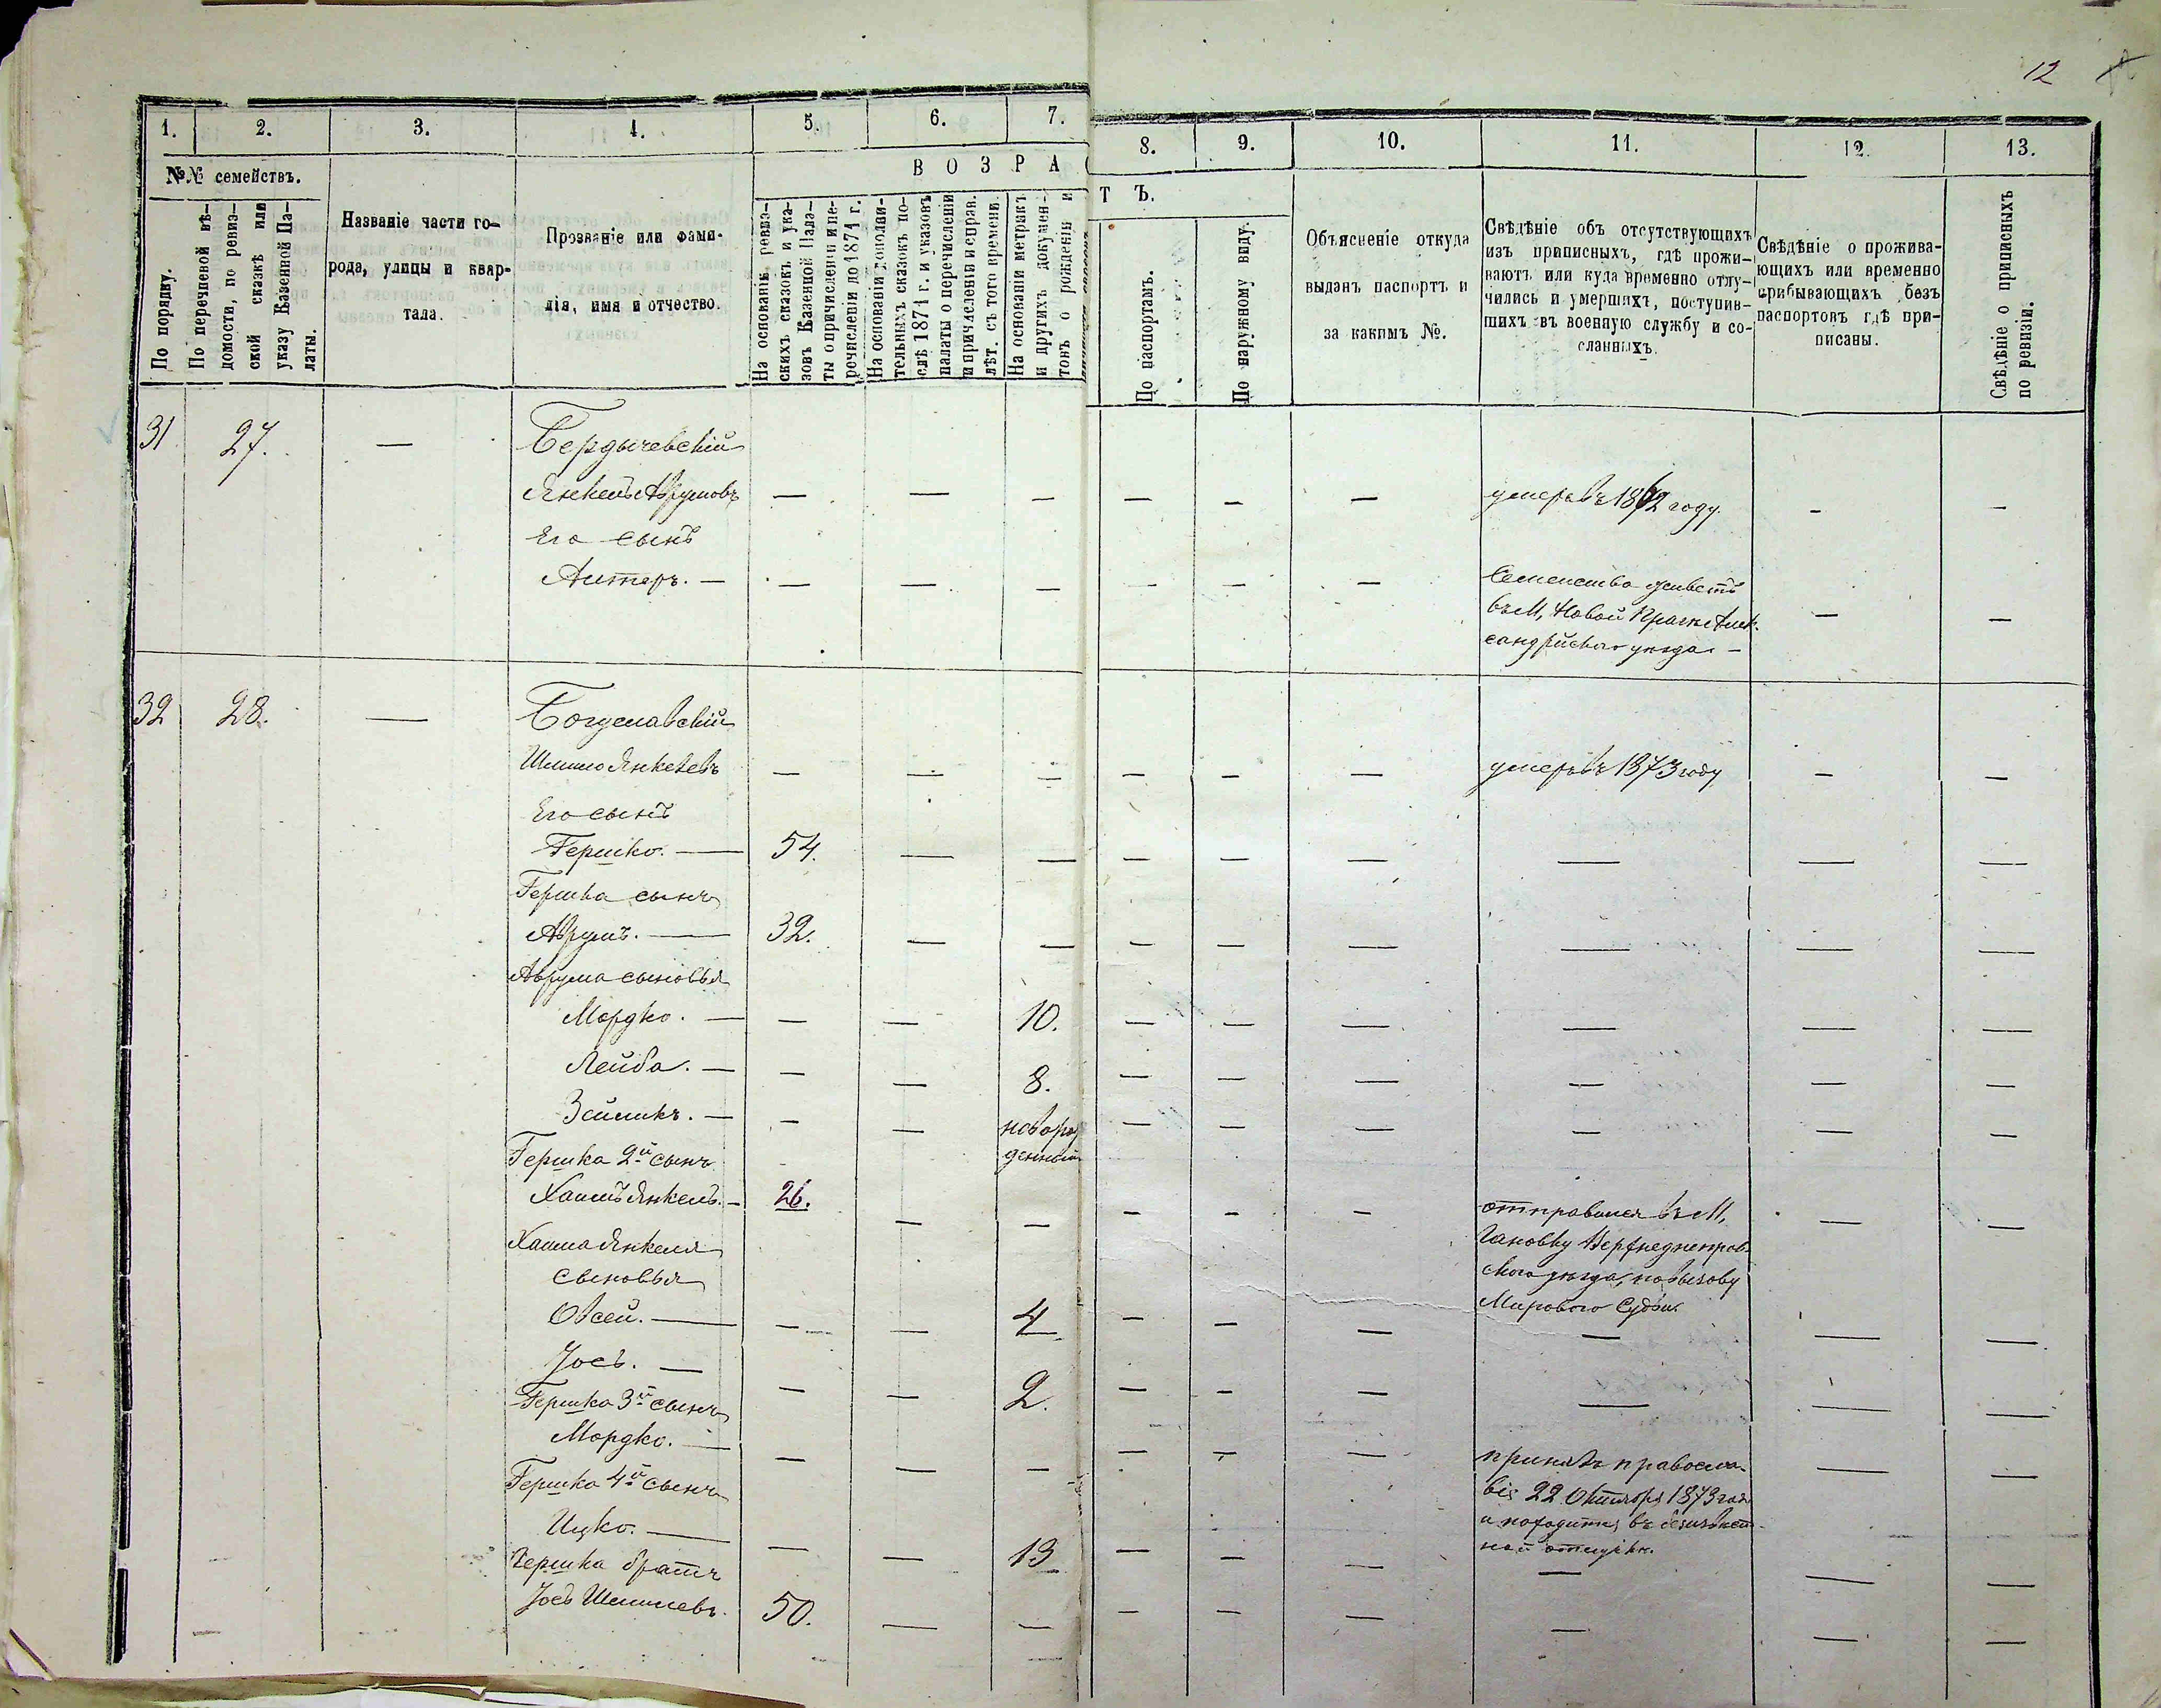 12
1. 2. 3. 4. 5. 6. 7. 8. 9. 10. 11. 12. 13.
№№ семействъ.
В О З Р А С Т Ъ.
По порядку.
По перечневой вѣ-
домости, по ревиз-
ской сказкѣ или
указу Казенной Па-
латы.
Названіе части го-
рода, улицы и квар-
тала.
Прозваніе или фами-
лія, имя и отчество.
На основаніи ревиз-
скихъ сказокъ и ука-
зовъ Казенной Пала-
ты о причисленіи и пе-
речисленіи до 1871 г.
На основаніи дополни-
тельныхъ сказокъ по-
слѣ 1871 г. и указовъ
палаты о перечисленіи
и причисленіи и справ.
лѣт. съ того времени.
На основаніи метрикъ
и другихъ докумен-
товъ о рожденіи и
По паспортамъ.
По наружному виду.
Объясненіе откуда
выданъ паспортъ и
за какимъ №.
Свѣдѣніе объ отсутствующихъ
изъ приписныхъ, гдѣ прожи-
ваютъ или куда временно отлу-
чились и умершихъ, поступив-
шихъ въ военную службу и со-
сланныхъ.
Свѣдѣніе о прожива-
ющихъ или временно
прибывающихъ безъ
паспортовъ гдѣ при-
писаны.
Свѣдѣніе о приписныхъ
по ревизіи.
31 27. — Бердычевскій
Янкель Аврумовъ — — — — — — умеръ въ 1872 году. — —
Его сынъ
Алтеръ. — — — — — — — Семейство живетъ — —
въ М, Новой Прагѣ Алек-
сандрійскаго уѣзда. —
32 28. — Богуславскій
Шлиомо Янкелевъ — — — — — — умеръ въ 1873 году — —
Его сынъ
Гершко. — 54. — — — — — — — —
Гершка сынъ
Аврумъ. — 32. — — — — — — — —
Аврума сыновья
Мордко. — — — 10. — — — — — —
Лейба. — — — 8. — — — — — —
Зейликъ. — — — новорож — — — — — —
денный
Гершка 2й сынъ
Хаимъ Янкель. — 26. — — — — — отправился въ М, — —
Хаима Янкеля Гановку Верхнеднепров-
сыновья скаго уѣзда, по вызову
Мирового Судьи.
Овсей. — — — 4 — — — — — —
Іосъ. — — — 2. — — — — — —
Гершка 3й сынъ
Мордко. — — — — — — — принялъ правосла- — —
Гершка 4й сынъ віе 22 Октября 1873 года
и находится въ безизвѣст-
ной отлучкѣ.
Ицко. — — — 13 — — — — — —
Гершка братъ
Іосъ Шлиомевъ. 50. — — — — — — — —